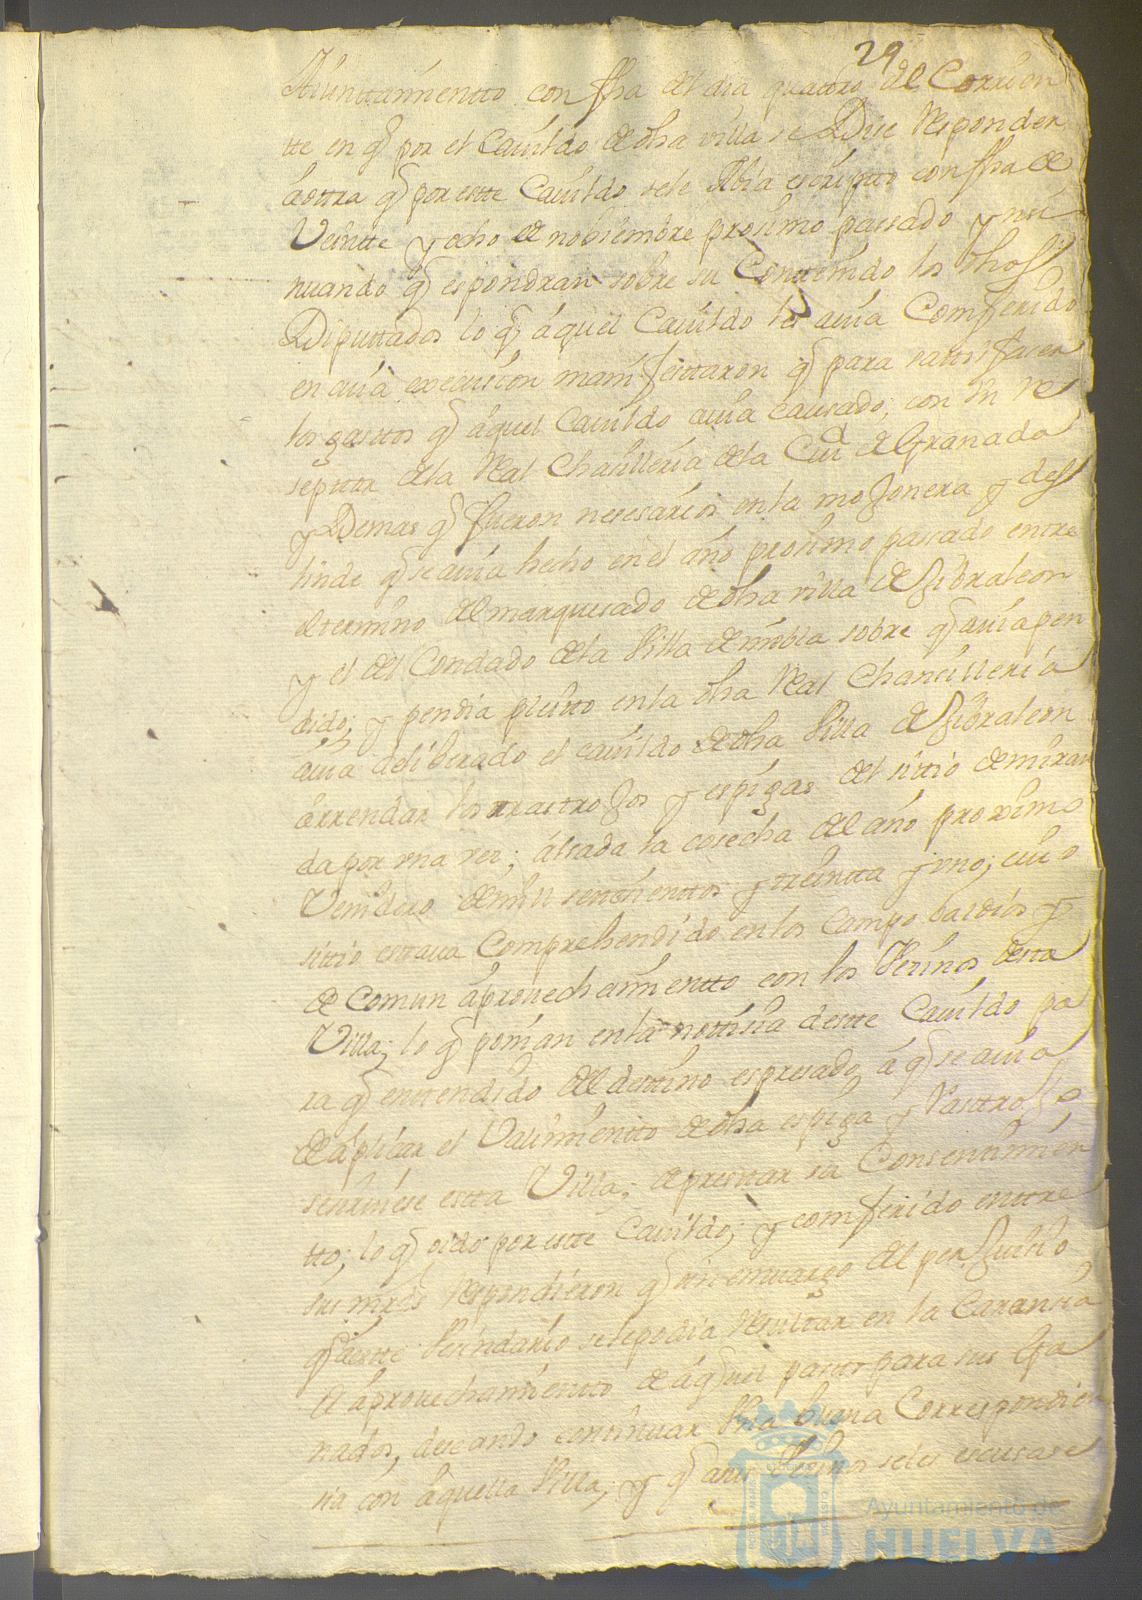 29
Aiunttamientto con fha del dia quattro del Corrien
tte en q̃ por el Cavildo de dha villa se Dise Responder
á ottra q̃ por estte Cavildo se le Abia escripto con fha de
Veintte y ocho de nobiembre proximo passado y nsi
nuando q̃ espondran sobre su Contenido los dhos
Diputtados lo q̃ áquel Cavildo les avia Comferido
en cuia execusion manifesttaron q̃ para sattisfaser
los gasttos q̃ áquel Cavildo avia causado, con Un Re
septtor de la Real Chansilleria de la Ciud de Granada
y Demas q̃ fueron nesesarios en la mojonera y des
linde q̃ se avia hecho en el año proximo passado entre
el termino del marquesado de dha villa de Gibraleon
y el del Condado de la Villa de niebla sobre q̃ avia pen
dido, y pendia pleitto en la dha Real Chansilleria
avia deliberado el cavildo de dha Villa de Gibraleon
árrendar los rrastrojos y espigas del sittio de miran
da por una vez; álsada la cosecha del año proximo
Venidero de mill settesienttos y treintta y uno; cuio
sittio estava Comprehendido en los Campo baldios y
de Comun áprouechamientto con los Vesinos desta
Villa; lo q̃ ponian en la nottisia destte Cavildo pa
ra q̃ enttendido del desttino espresado á q̃ se avia
de áplicar el Valimientto de dha espiga y Rasttrojo
se sirviese estta Villa; de presttar su Consentimien
tto; lo q̃ oido por estte Cavildo; y comferido enttre
sus mrds Respondieron q̃ sin embargo del perjuicio
q̃ á estte Vesindario se le podia Resultar en la Caransia
del áprouechamientto de áquel pastto para sus Ga
nados, deseando conttinuar Vna buena Correspondien
sia con áquella Villa, y q̃ a sus Vesinos se les escusase
Ayuntamiento de
HUELVA